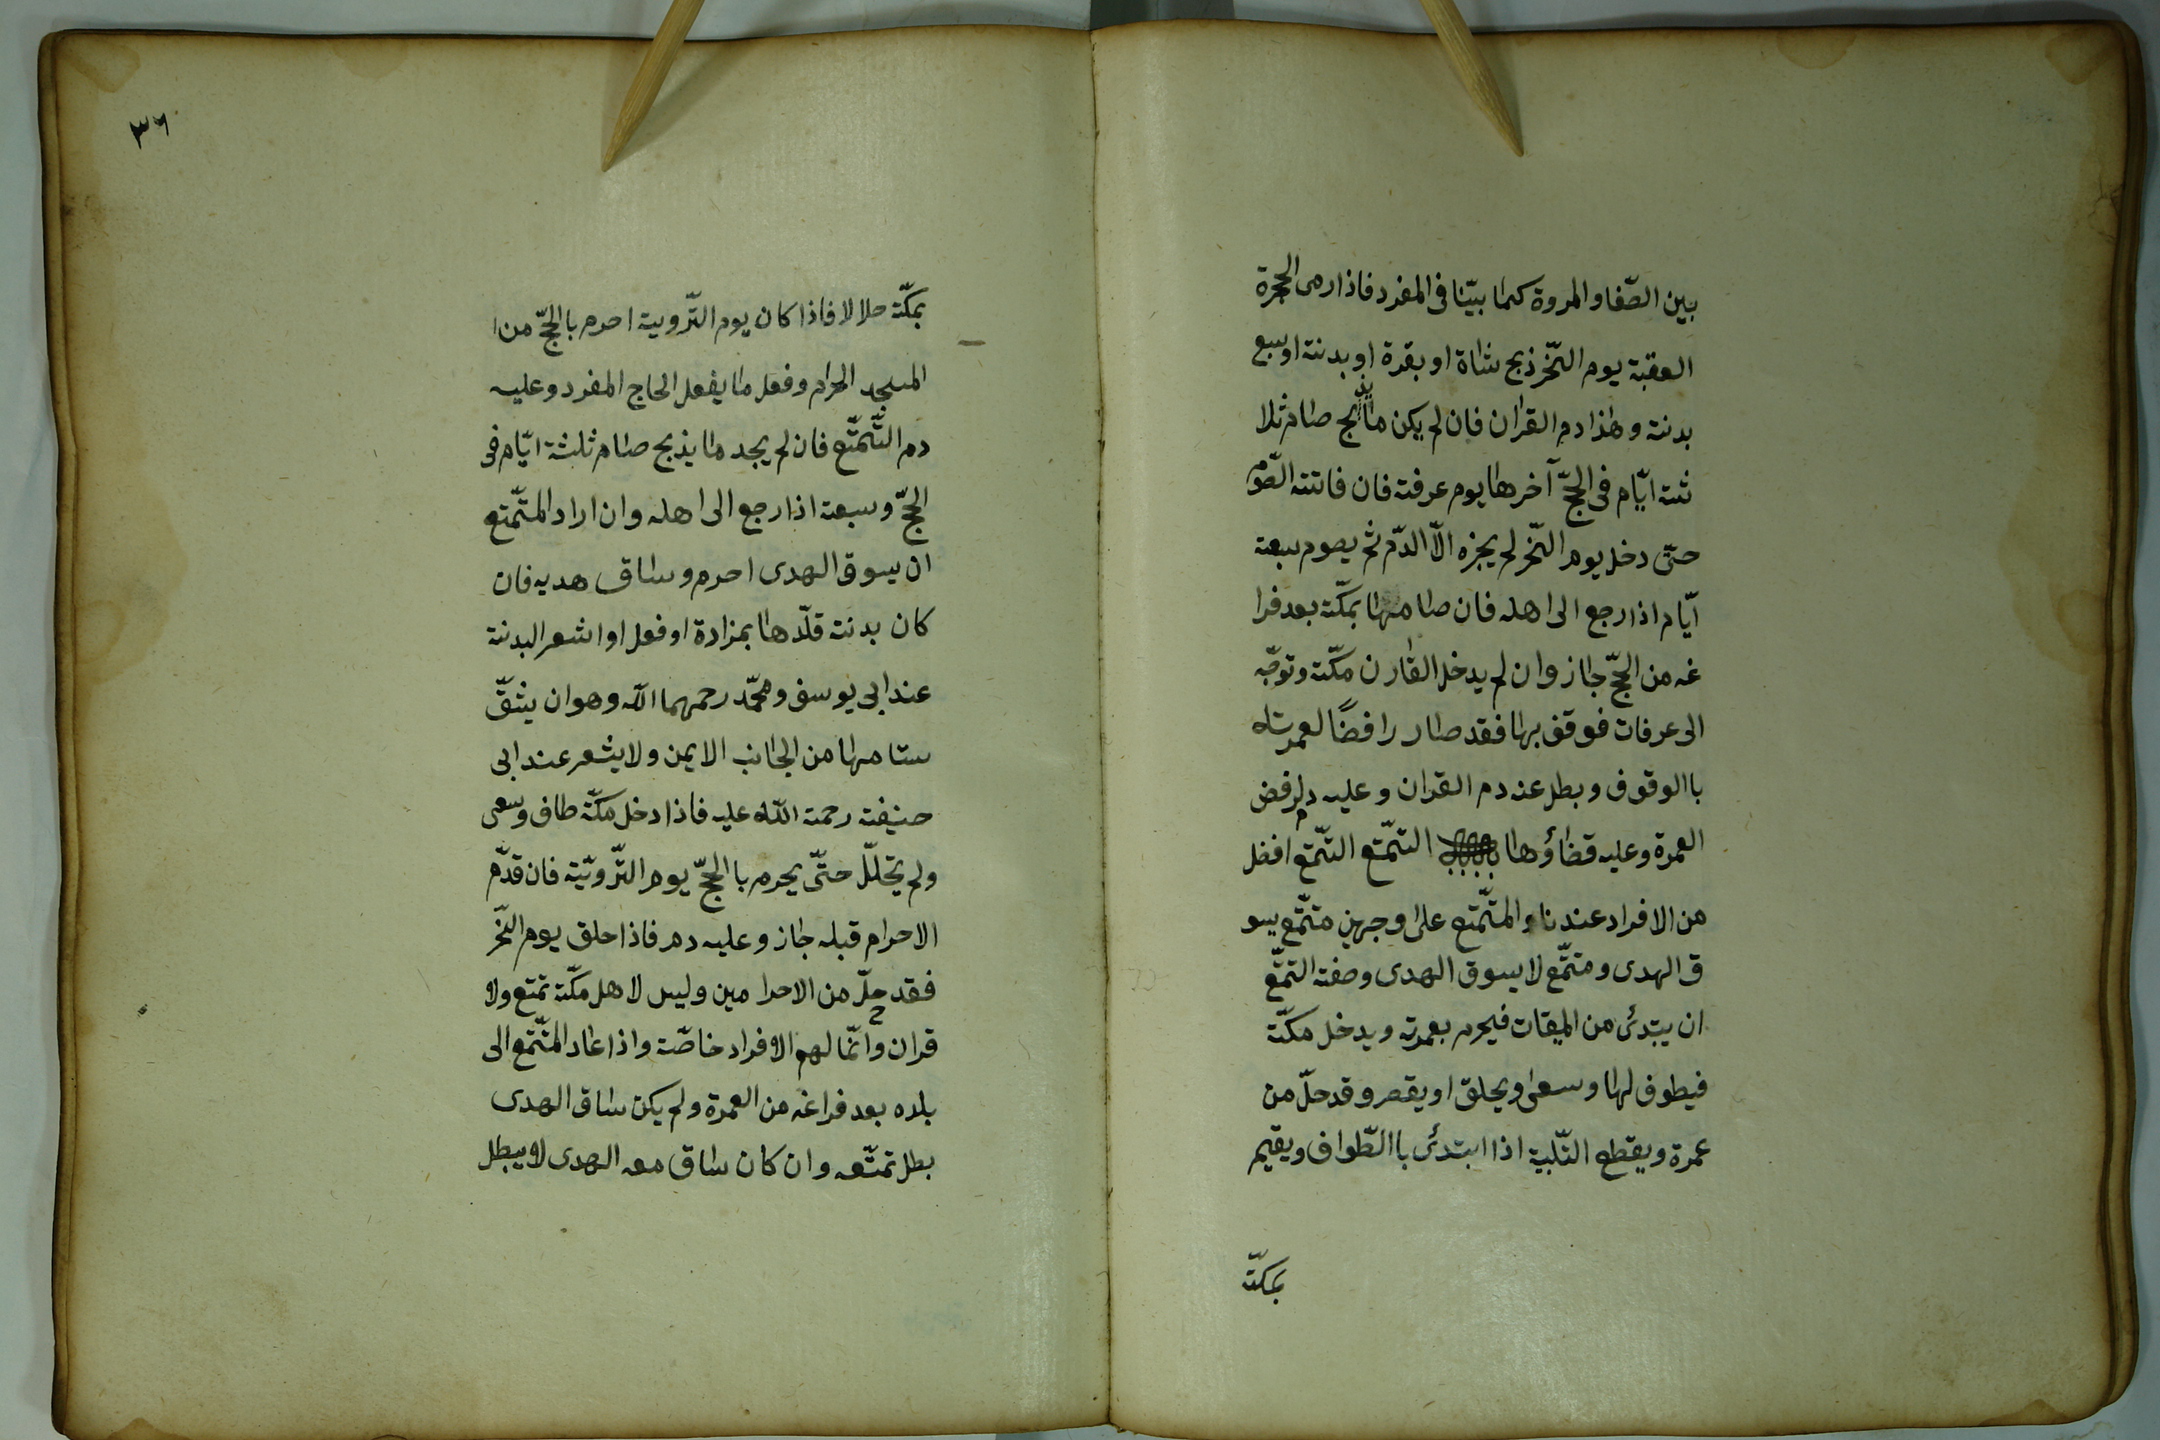 بين الصّفا والمروة كما بيّنا فى المفرد فاذا رمى الجمرة
العقبة يوم النّحر ذبح شاة او بقرة او بدنة او سبع
بدنة و هذا دم القران فان لم يكن ما يذبح صام ثلا
ثتة ايّام فى الحجّ آخرها يوم عرفة فان فاتته الصّوم
حتّى دخل يوم النّحر لم يجزه الّا الدّم ثم يصوم سبعة
ايّام اذا رجع الى اهله فان صامها بمكّة بعد فرا
غه من الحجّ جاز وان لم يدخل القارن مكّة وتوجّه
الى عرفات فوقف بها فقد صار رافضًا لعمرته
باالوقوف وبطل عنه دم القران وعليه دم لرفض
العمرة وعليه قضاؤها التّمتّع التّمتّع افضل
من الافراد عندنا والمتمتّع على وجهين متمتّع يسو
ق الهدى ومتمتّع لا يسوق الهدى وصفة التمتّع
ان يبتدئ من الميقات فيحرم بعمرته ويدخل مكّة
فيطوف لها وسعى ويحلق او يقصر وقد حلّ من
عمرة ويقطع التّلبية اذا ابتدئ باالطّواف ويقيم
بمكّة
٣٦
بمكّة حلالا فاذا كان يوم التّروية احرم باالحجّ من ا
المسجد الحرام وفعل ما يفعل الحاج المفرد وعليه
دم التّمتّع فان لم يجد ما يذبح صام ثلثة ايّام فى
الحجّ وسبعة اذا رجع الى اهله وان اراد المتمّتع
ان يسوق الهدى احرم وساق هديه فان
كان بدنة قلّدها بمزادة او فعل او اشعر البدنة
عند ابى يوسف ومحمّد رحمهما الله وهو ان يشقّ
سنامها من الجانب الايمن ولا يشعر عند ابى
حنيفة رحمة اللّه عليه فاذا دخل مكّة طاف وسعى
ولم يتحلّل حتّى يحرم باالحجّ يوم التّرويّة فان قدّم
الاحرام قبله جاز وعليه دم فاذا حلق يوم النّحر
فقد حلّ من الاحرا مين وليس لاهل مكّة تمتع ولا
قران وانّما لهم الافراد خاصّة واذا عاد المتّمتّع الى
بلده بعد فراغه من العمرة ولم يكن ساق الهدى
بطل تمتّعه وان كان ساق معه الهدى لا يبطل